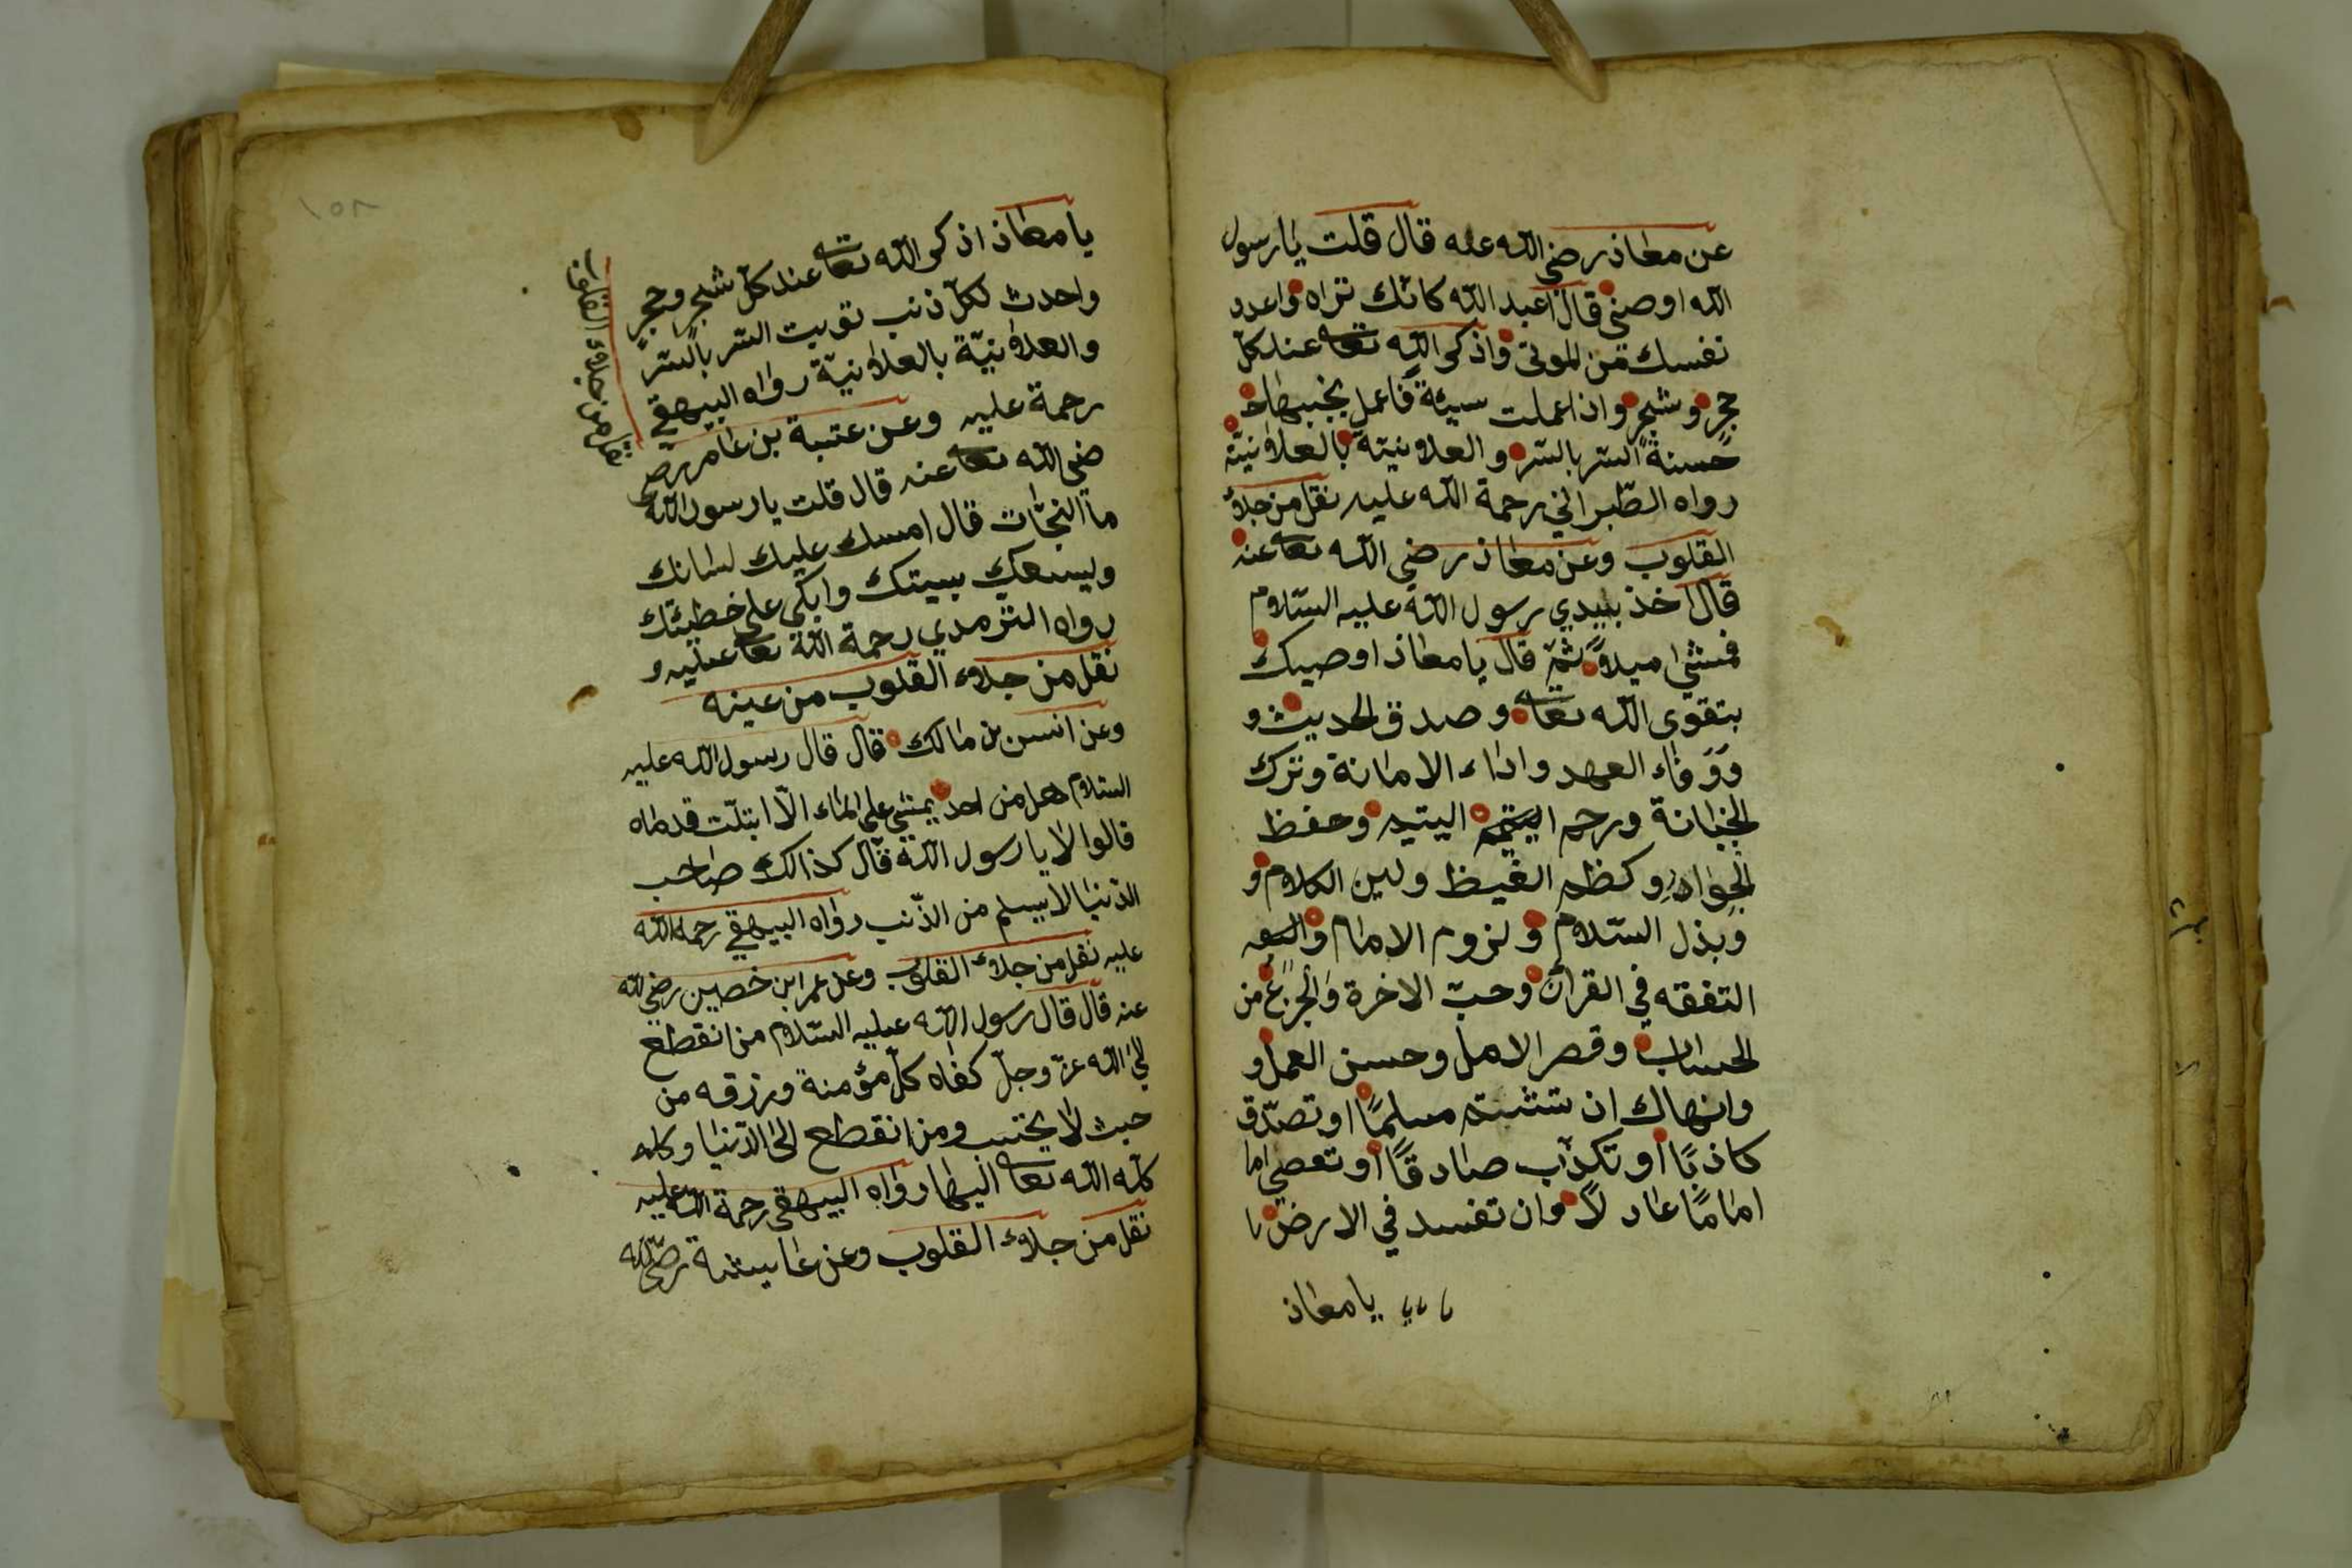 عن معاذ رضي الله عنه قال قلت يا رسول
الله اوصني قال اعبد الله كانك تراه واعدد
نفسك من الموتى واذكر الله تعا عند كلّ
حجر وشجر واذا عملت سيئة فاعمل بجنبها
حسنة السر بالسّر والعلانية بالعلانيّة
رواه الطّبراني رحمة الله عليه نقل من جلاء
القلوب وعن معاذ رضي الله تعا عنه
قال اخذ بيدي رسول الله عليه السّلام
فمشى ميلاً ثمّ قال يا معاذ اوصيك
بتقوى الله تعا وصدق الحديث و
ووفاء العهد واداء الامانة وترك
الخيانة ورحم اليتيم وحفظ
الجوار وكظم الغيظ ولين الكلام و
وبذل السّلام ولزوم الامام
التفقه في القرآن وحبّ الاخرة والجزع من
الحساب وقصر الامل وحسن العمل و
وانهاك ان تشتم مسلمًا او تصدّق
كاذبًا او تكذّب صادقًا او تعصي اما
امامًا عادلاً وان تفسد في الارض يا
يا معاذ
يا معاذ اذكر الله تعا عند كلّ شجر وحجر
واحدث لكلّ ذنب توبت السّر بالسّر
والعلانيّة بالعلانيّة رواه البيهقي
نقل من جلاء القلوب
رحمة عليه وعن عتبة بن عامر رض
ضي الله تعا عنه قال قلت يا رسول الله
ما النجات قال امسك عليك لسانك
وليسعك بيتك وابكى على خطيئتك
رواه الترمدي رحمة الله تعا عليه و
نقل من جلاء القلوب من عينه
وعن انس بن مالك قال قال رسول الله عليه
السّلام هل من احد يمشي على الماء الّا ابتلّت قدماه
قالوا لا يا رسول الله قال كذالك صاحب
الدّنيا لا يسلم من الذّنب رواه البيهقي رحمة الله
عليه نقل من جلاء القلوب وعن عمر ابن خصين رضي الله
عنه قال قال رسول الله عليه السّلام من انقطع
الى الله عزّ وجلّ كفاه كلّ مؤمنة ورزقه من
حيث لا يحتسب ومن انقطع الى الدّنيا وكله
كله الله تعا اليها رواه البيهقي رحمة الله عليه
نقل من جلاء القلوب وعن عايشة رضي الله
١٥٨